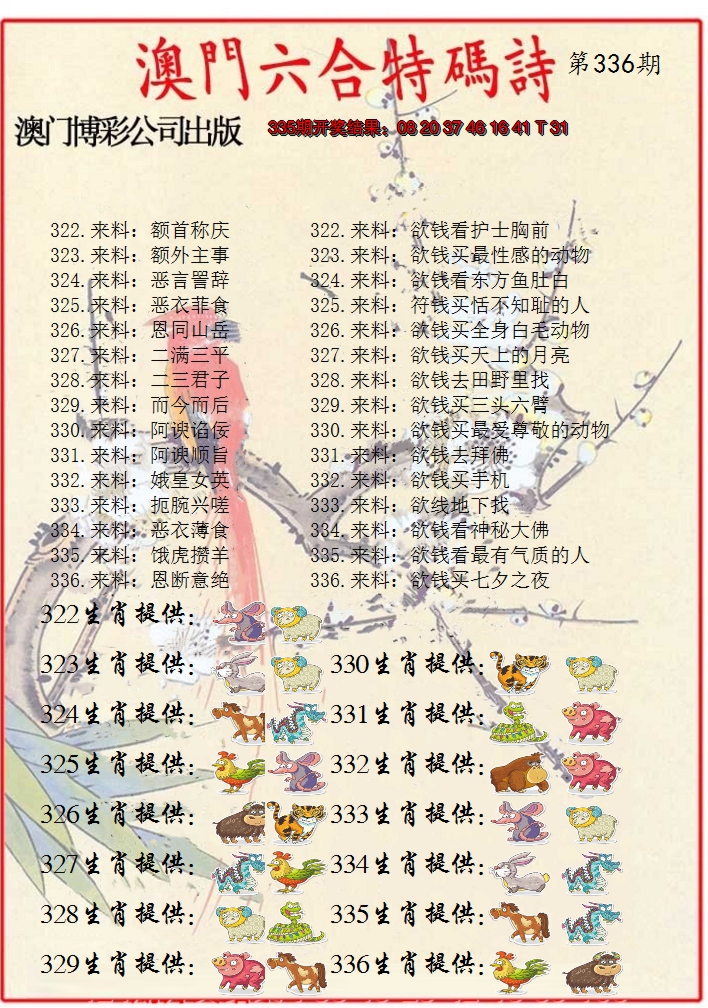 澳門六合特碼詩 第336期
澳门博彩公司出版 335期开奖结果：08 20 37 46 16 41 T 31
322.来料：额首称庆 322.来料：欲钱看护士胸前
323.来料：额外主事 323.来料：欲钱买最性感的动物
324.来料：恶言詈辞 324.来料：欲钱看东方鱼肚白
325.来料：恶衣菲食 325.来料：符钱买恬不知耻的人
326.来料：恩同山岳 326.来料：欲钱买全身白毛动物
327.来料：二满三平 327.来料：欲钱买天上的月亮
328.来料：二三君子 328.来料：欲钱去田野里找
329.来料：而今而后 329.来料：欲钱买三头六臂
330.来料：阿谀谄佞 330.来料：欲钱买最受尊敬的动物
331.来料：阿谀顺旨 331.来料：欲钱去拜佛
332.来料：娥皇女英 332.来料：欲钱买手机
333.来料：扼腕兴嗟 333.来料：欲线地下找
334.来料：恶衣薄食 334.来料：欲钱看神秘大佛
335.来料：饿虎攒羊 335.来料：欲钱看最有气质的人
336.来料：恩断意绝 336.来料：欲钱买七夕之夜
322生肖提供：
323生肖提供： 330生肖提供：
324生肖提供： 331生肖提供：
325生肖提供： 332生肖提供：
326生肖提供： 333生肖提供：
327生肖提供： 334生肖提供：
328生肖提供： 335生肖提供：
329生肖提供： 336生肖提供：